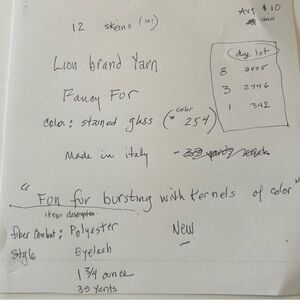 12 skeins (set)
Avg $10
skein
Lion brand Yarn
Fancy Fur
color: stained glass (color # 254)
dye lot
8 2445
3 2446
1 342
Made in italy
"Fun fur bursting with kernels of color"
item description
fiber content: Polyester New
Style Eyelash
1 3/4 ounce
39 yards